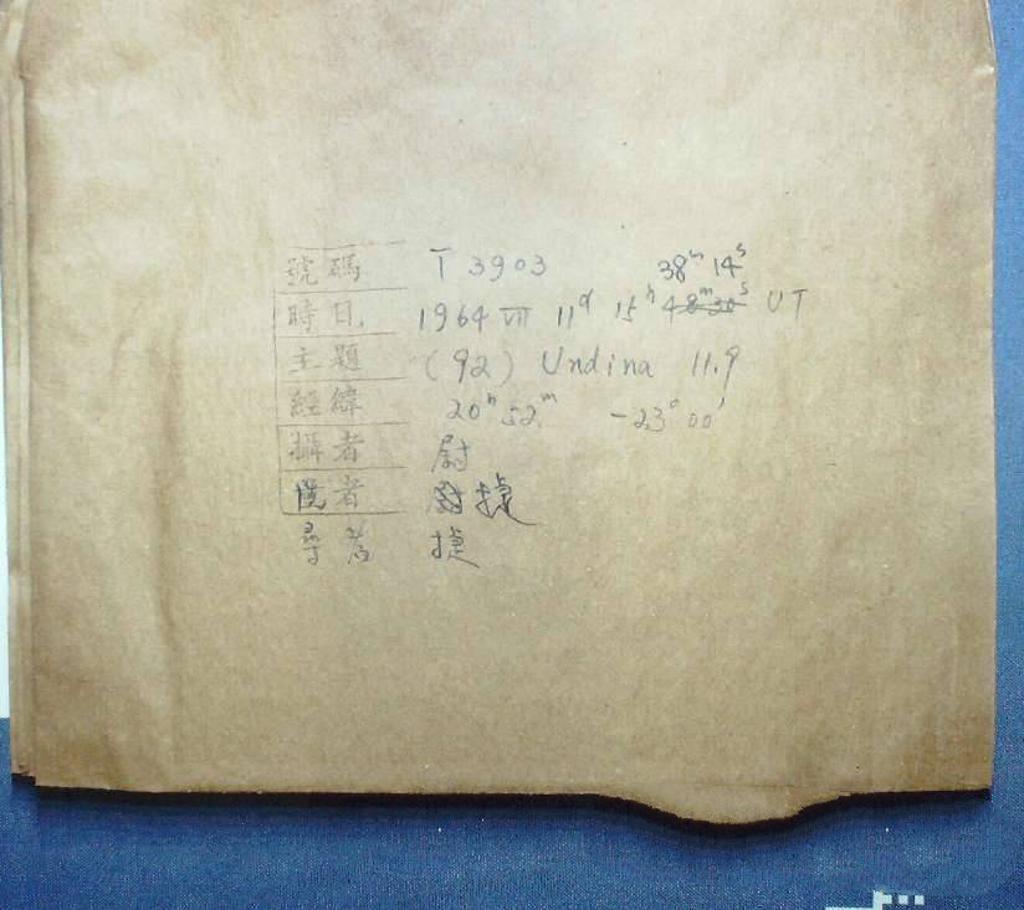 號碼 T 3903 38ᵐ 14ˢ
時日 1964 VII 11ᵈ 15ʰ 48ᵐ30ˢ UT
主題 (92) Undina 11.9
經緯 20ʰ 52ᵐ -23° 00'
攝者 尉
者 捷
尋者 捷